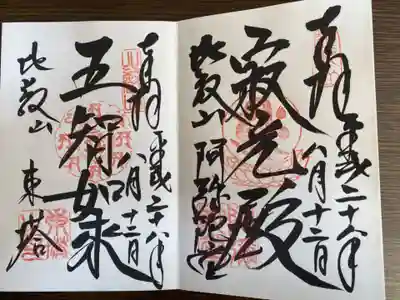 奉拝 平成二十八年
八月十二日
寂光殿
比叡山 阿弥陀堂
奉拝 平成二十八年
八月十二日
五智如来
比叡山 東塔